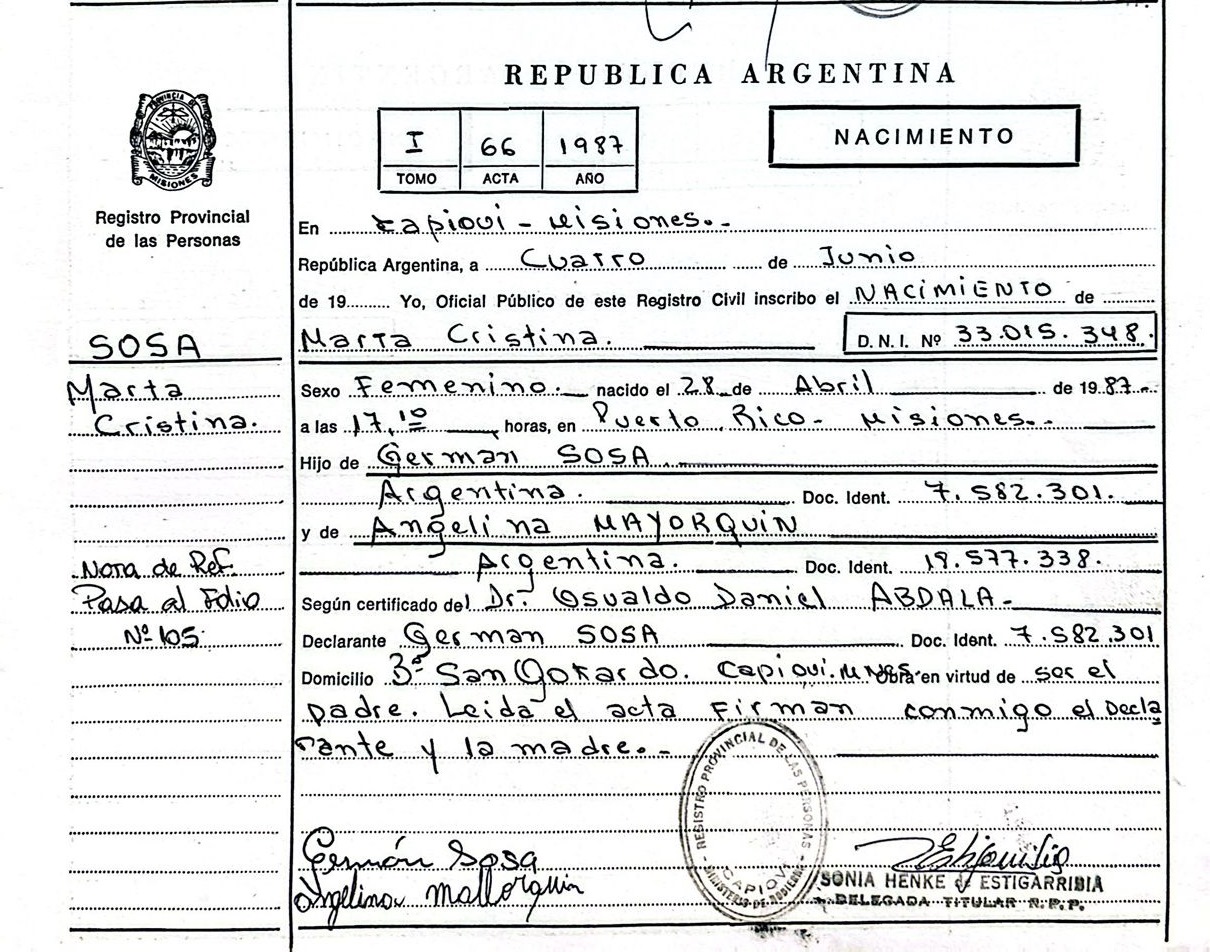 REPUBLICA ARGENTINA
PROVINCIA DE
MISIONES
I 66 1987
TOMO ACTA AÑO
NACIMIENTO
Registro Provincial
de las Personas
En Capiovi - Misiones.-
República Argentina, a Cuatro de Junio
de 19 Yo, Oficial Público de este Registro Civil inscribo el NACIMIENTO de
SOSA
Marta Cristina. D. N. I. Nº 33.015.348.
Marta
Cristina.
Sexo Femenino. nacido el 28 de Abril de 1987.-
a las 17,10 horas, en Puerto Rico - Misiones.-
Hijo de German SOSA
Argentina. Doc. Ident. 7.582.301.
y de Angelina MAYORQUIN
Argentina. Doc. Ident. 18.577.338.
Nota de Ref.
Pasa al Folio
Nº 105.
Según certificado del Dr. Osvaldo Daniel ABDALA.-
Declarante German SOSA Doc. Ident. 7.582.301
Domicilio Bº San Gotardo. Capiovi. Mnes. Obra en virtud de ser el
padre. Leida el acta firman conmigo el Decla
rante y la madre.-
REGISTRO PROVINCIAL DE LAS PERSONAS
CAPIOVI
Germán Sosa
Angelina Mallorquin
SONIA HENKE de ESTIGARRIBIA
DELEGADA TITULAR R.P.P.